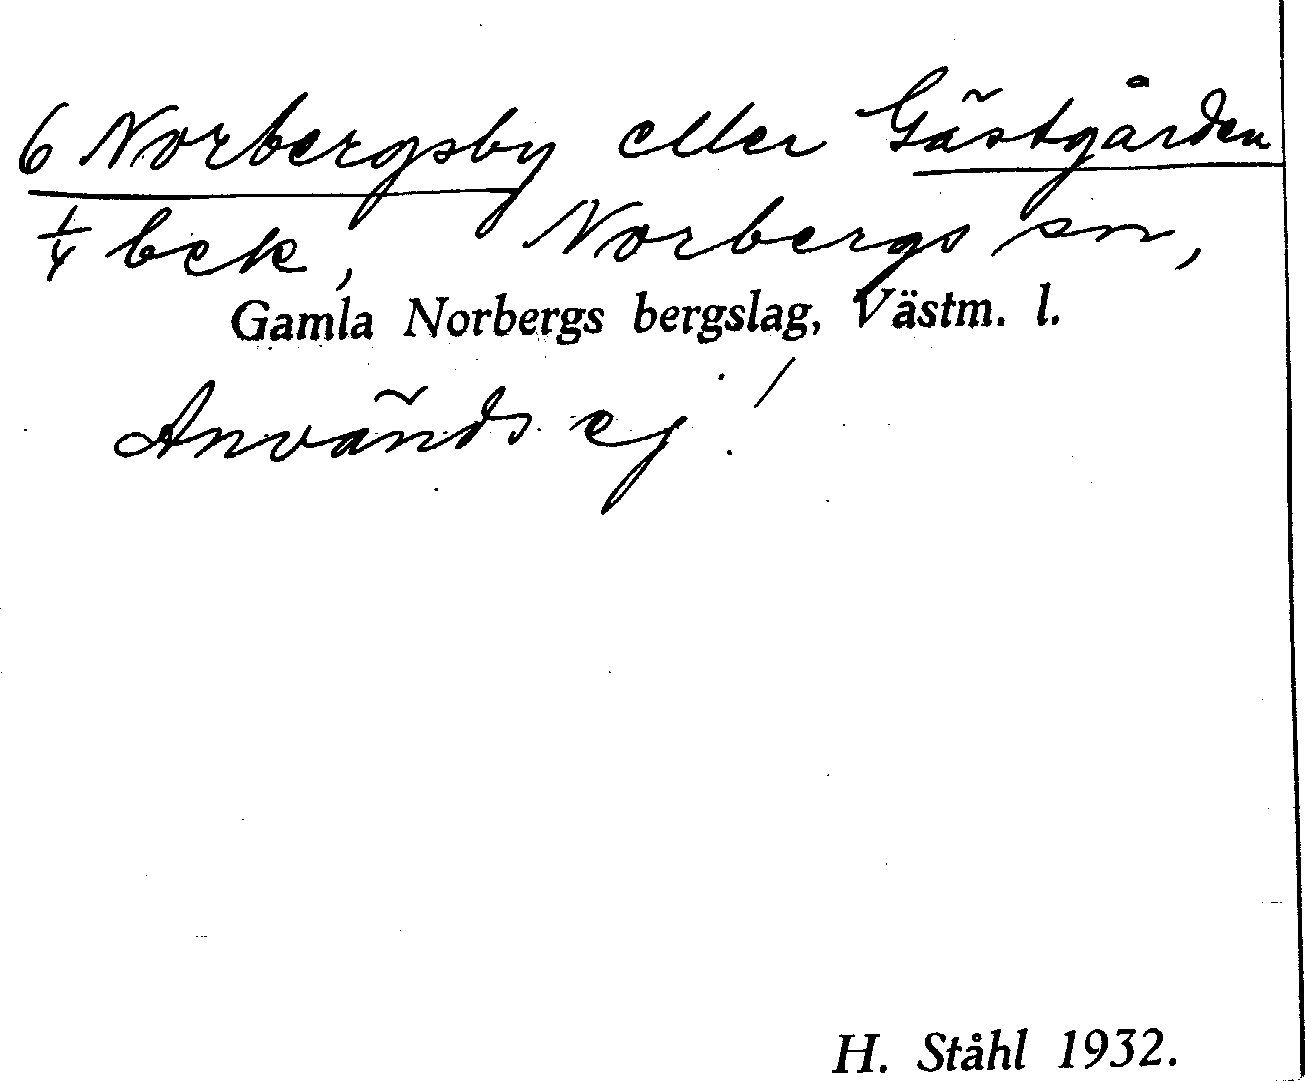 6 Norbergsby eller Gästgården
1/4 bek, Norbergs sn,
Gamla Norbergs bergslag, Västm. l.
Används ej!
H. Ståhl 1932.